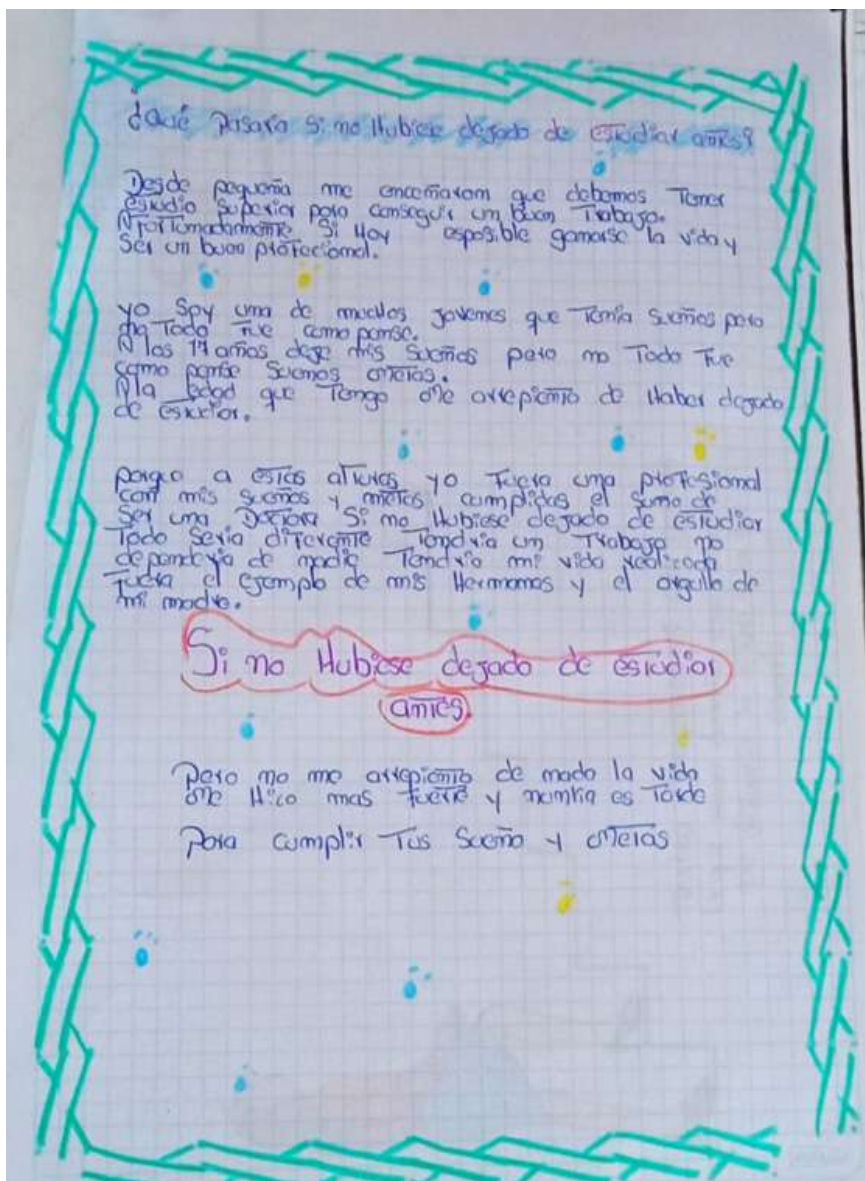 ¿Qué pasaria si no Hubiese dejado de estudiar antes?
Desde pequeña me enceñaron que debemos Tener
estudio superior para conseguir un buen Trabajo.
Afortunadamente Si Hoy esposible ganarse la vida y
Ser un buen profecional.
yo Soy una de muchos jovenes que Tenia sueños pero
no Todo fue como pense.
A los 17 años deje mis Sueños pero no Todo fue
como pense Suenos metas.
A la edad que Tengo me arrepiento de Haber dejado
de estudiar.
porque a estas alturas yo fuera una profesional
con mis sueños y metas cumplidas el sumo de
Ser una Doctora Si no Hubiese dejado de estudiar
Todo seria diferente Tendria un Trabajo no
dependeria de nadie Tendria mi vida realizada
fuera el ejemplo de mis Hermanos y el orgullo de
mi madre.
Si no Hubiese dejado de estudiar
antes.
Pero no me arrepiento de nado la vida
me Hico mas fuerte y nuntia es Tarde
Para cumplir Tus Sueño y metas